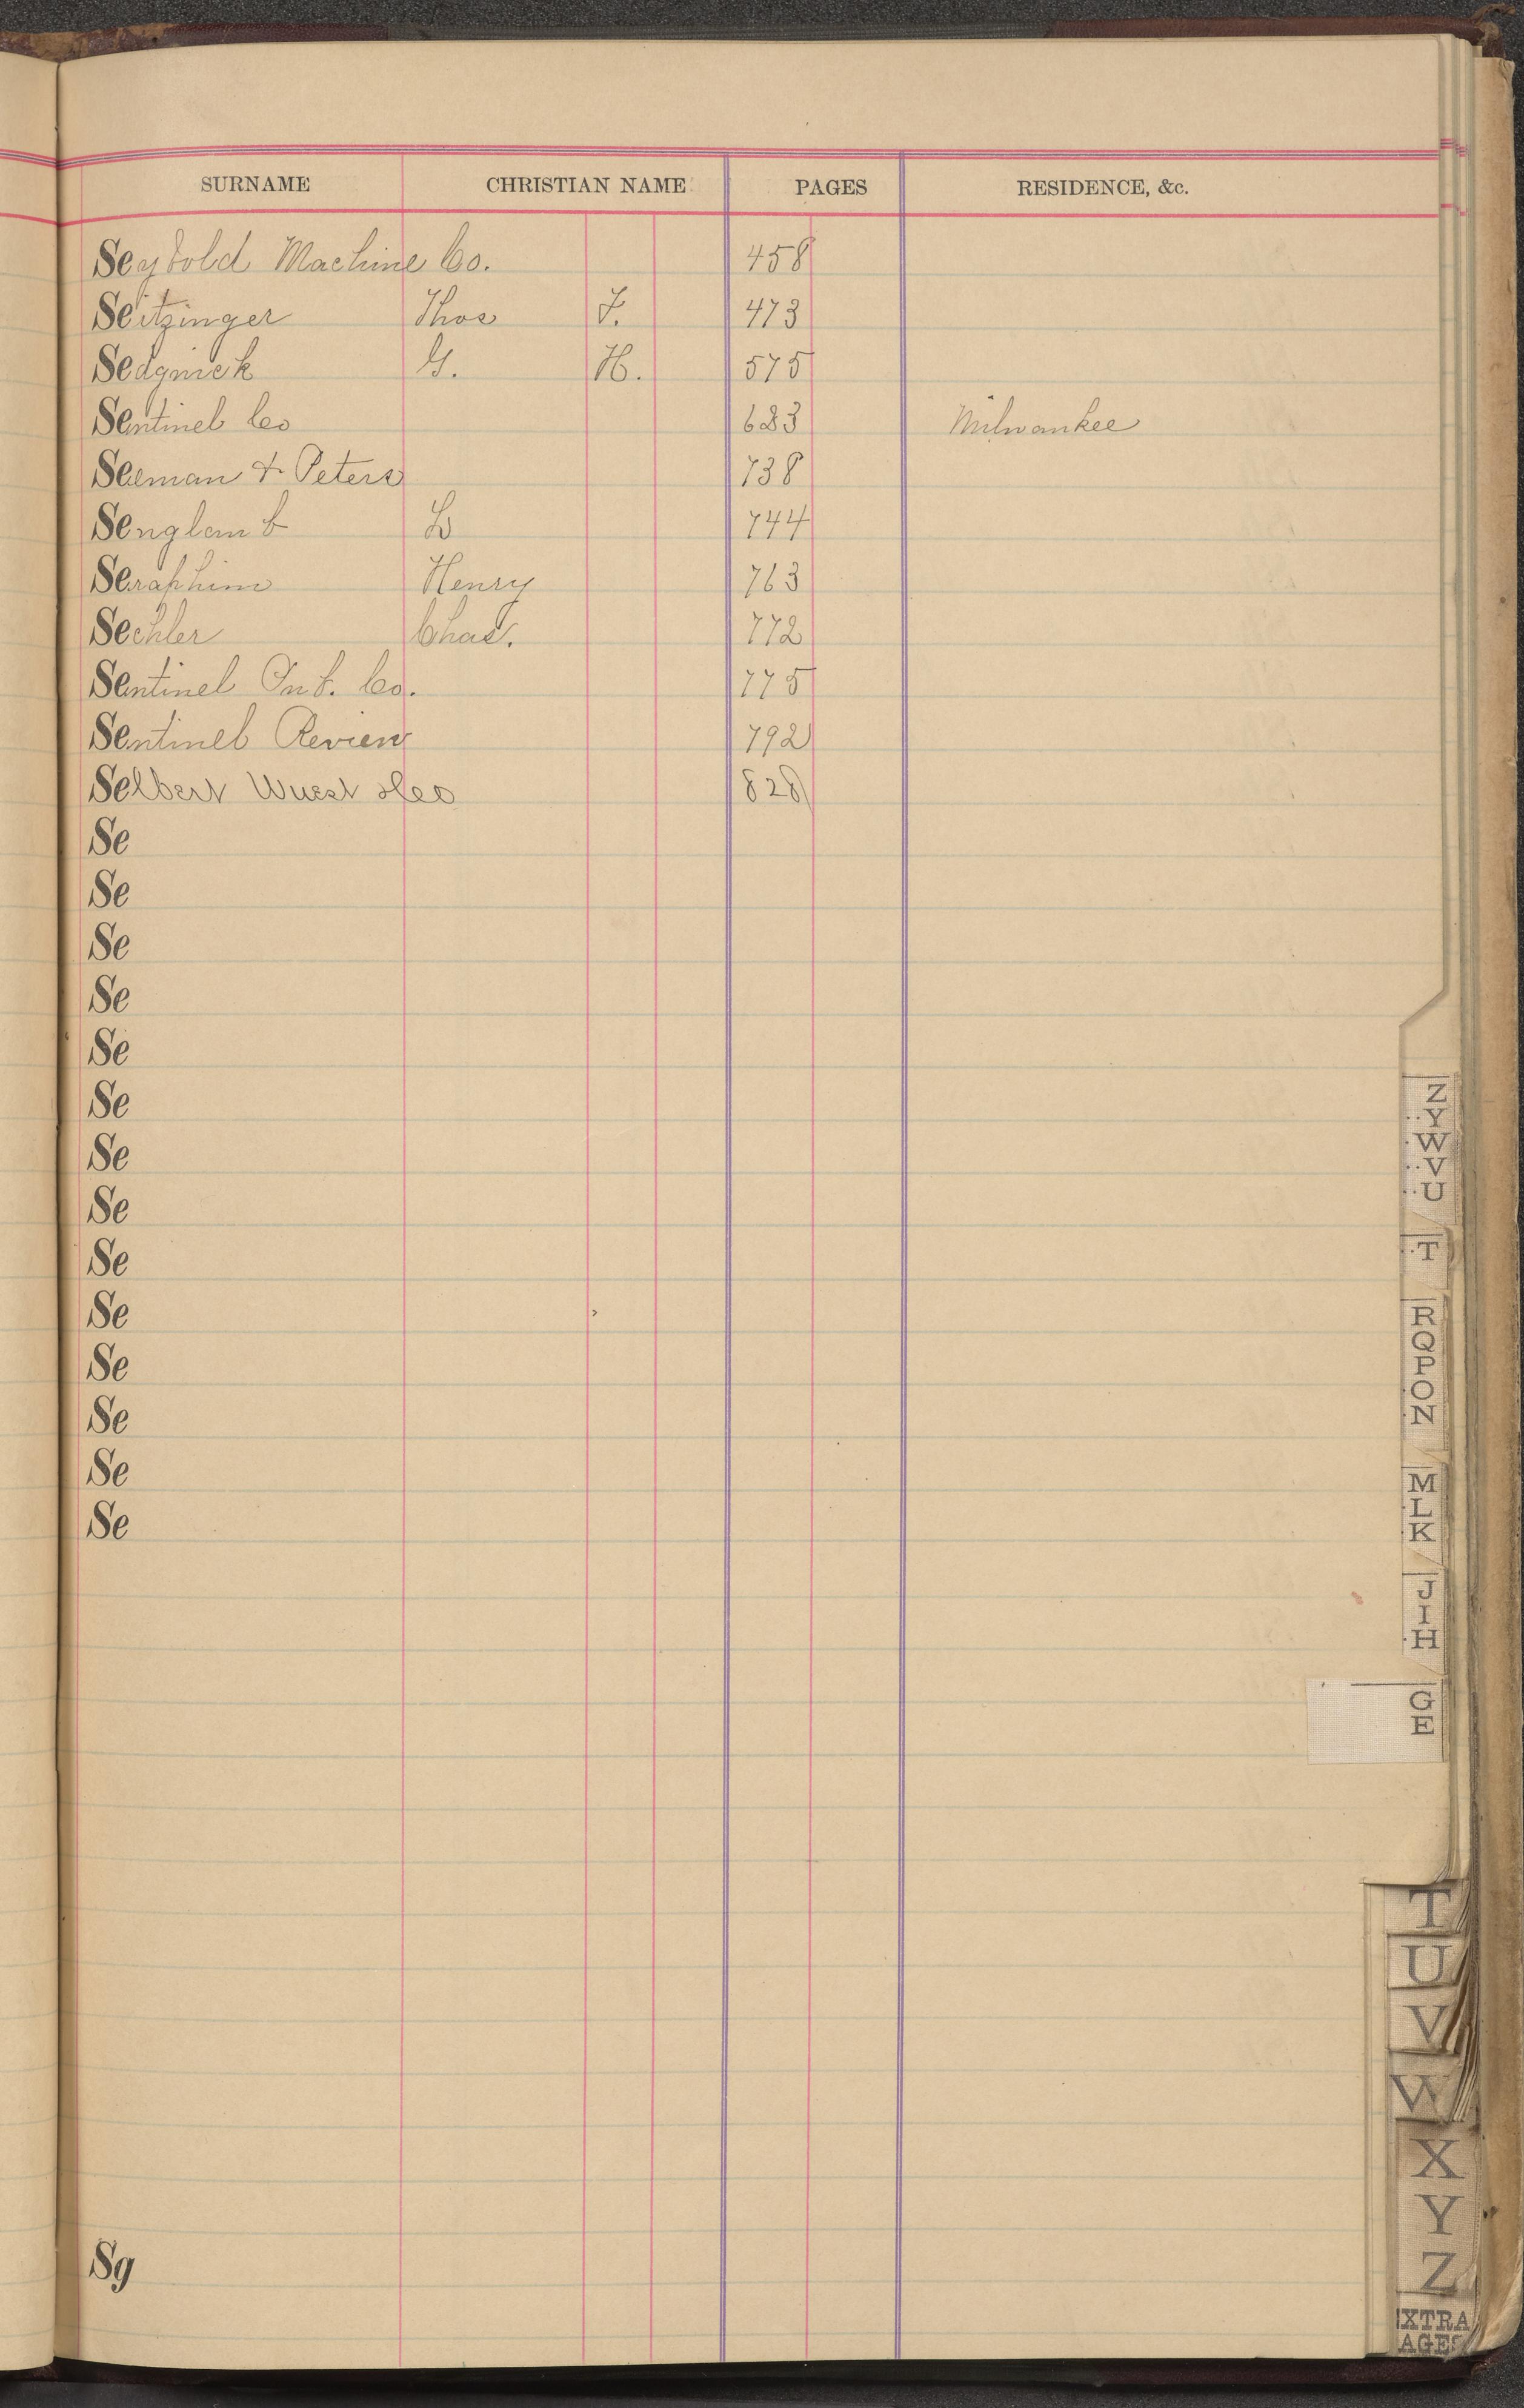 SURNAME CHRISTIAN NAME PAGES RESIDENCE, &c.
Seybold Machine Co. 458
Seitzinger Thos F. 473
Sedgwick G. H. 575
Sentinel Co 683 Milwaukee
Seeman & Peters 738
Senglaub L 744
Seraphim Henry 763
Sechler Chas. 772
Sentinel Pub. Co. 775
Sentinel Review 792
Selbert Wuest &Co 828
Se
Se
Se
Se
Se
Se
Se
Se
Se
Se
Se
Se
Se
Se
Sg
Z
Y
W
V
U
T
R
Q
P
O
N
M
L
K
J
I
H
G
E
T
U
V
W
X
Y
Z
EXTRA
AGES